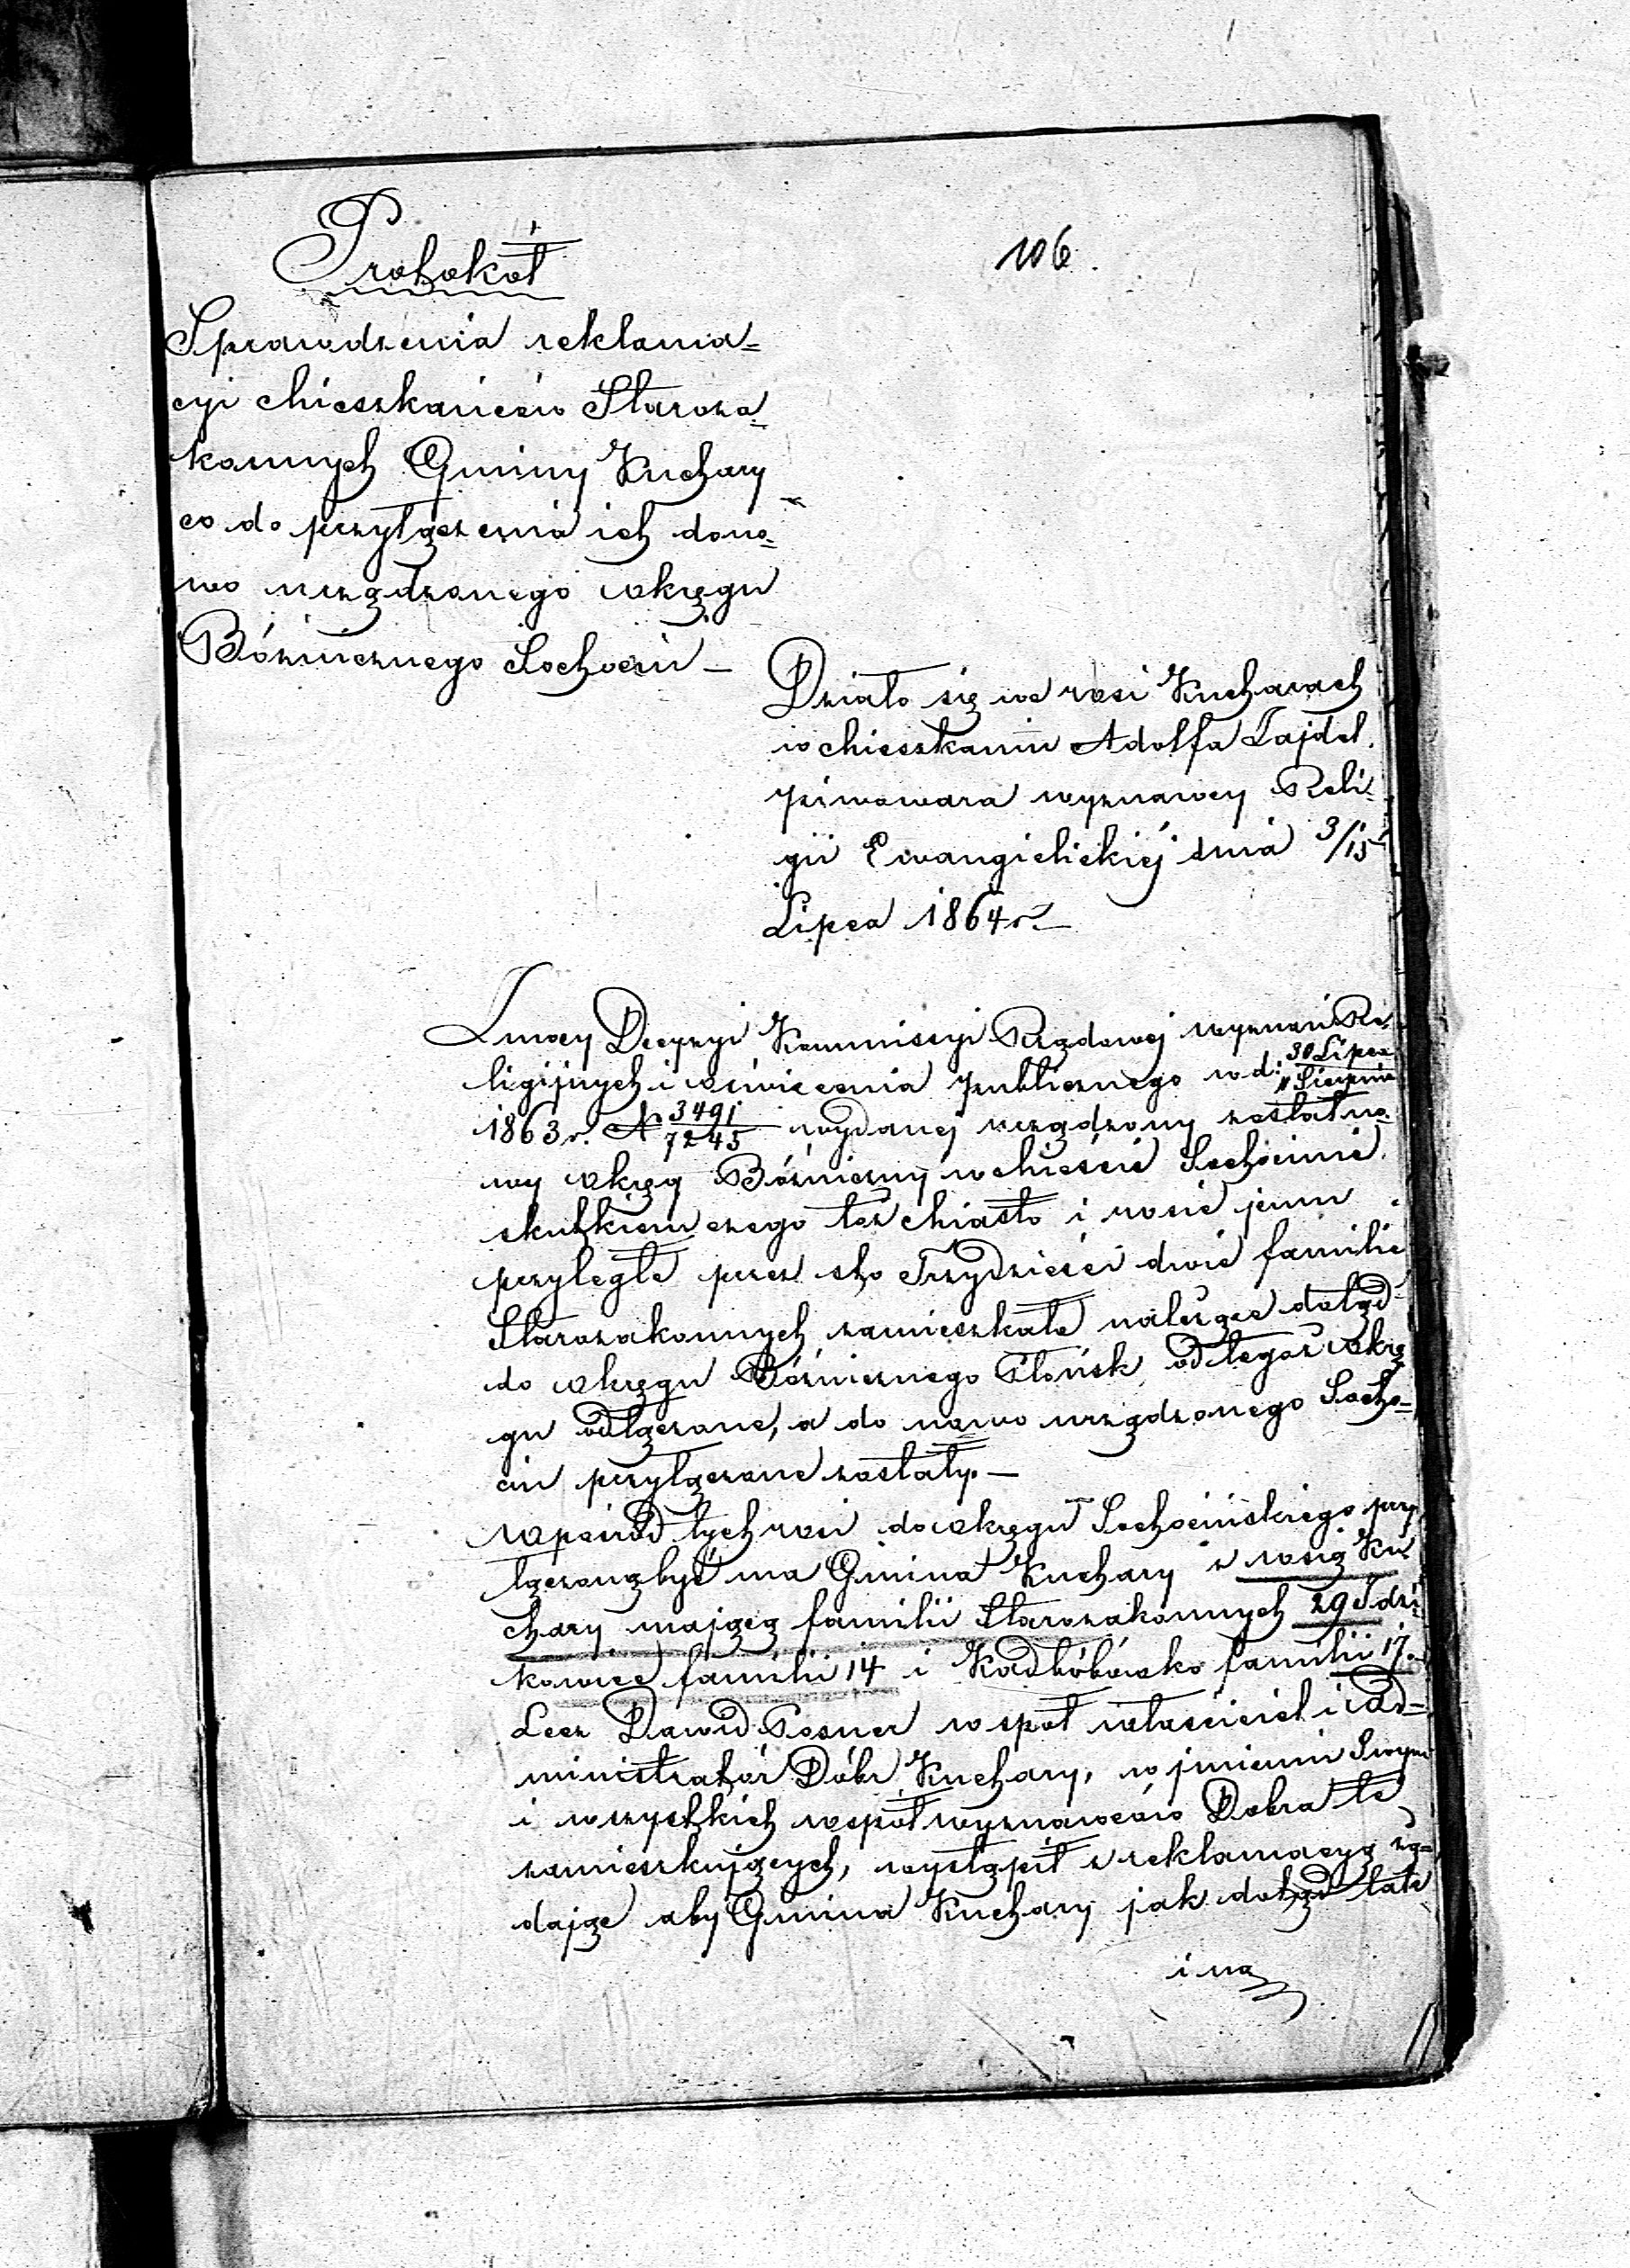 106.
Protokół
Sprawdzenia reklama=
cyi Mieszkańców Staroza=
konnych Gminy Kuchary
co do przyłączenia ich dono=
wo urządzonego Okręgu
Bóżnicznego Sochocin —
Działo się we wsi Kucharach
w Mieszkaniu Adolfa Lajdel
piwowara wyznawcy Reli=
gii Ewangielickiéj dnia 3/15
Lipca 1864 r. —
Z mocy Decyzyi Kommissyi Rządowej wyznań Re=
ligijnych i oświecenia publicznego w d: 30 Lipca / 11 Sierpnia
1863 r. N 3491/7245 wydanej urządzony został no=
wy Okręg Bóżniczny w Mieście Sochocinie,
skutkiem czego też Miasto i wsie jemu
przyległe przez sto Trzydzieści dwie familie
Starozakonnych zamieszkałe należące dotąd
do Okręgu Bóżnicznego Płońsk, od tegoż Okrę
gu odłączone, a do nowo urządzonego Socho=
cin przyłączone zostały. —
Wpośród tych wsi do Okręgu Sochocińskiego przy
łączoną być ma Gmina Kuchary z wsią Ku
chary mającą familii Starozakonnych 29
kowice familii 14 i familii 17.
Lecz Dawid Posner współ właściciel i Ad=
ministrator Dóbr Kuchary, w jmieniu Swym
i wszystkich współwyznawców Dobra te
zamieszkujących, wystąpił z reklamacyą żą=
dając aby Gmina Kuchary jak dotąd tak
i na